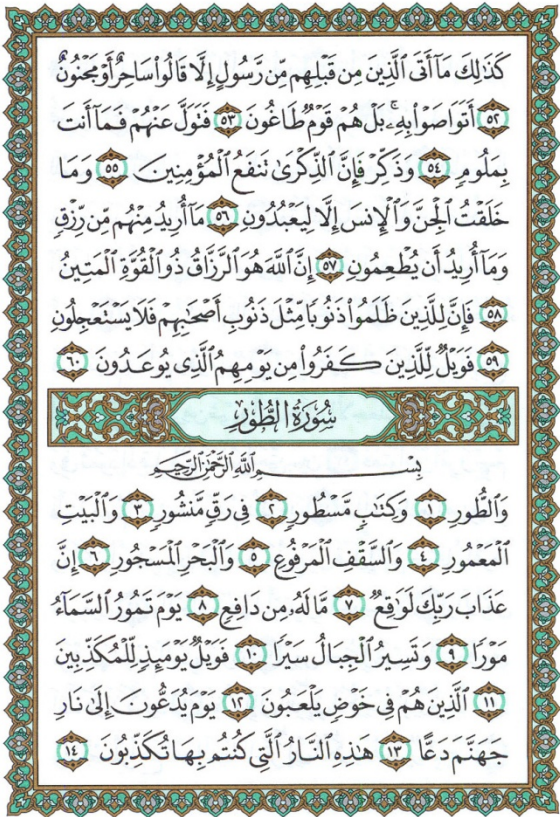 كَذَٰلِكَ مَآ أَتَى ٱلَّذِينَ مِن قَبْلِهِم مِّن رَّسُولٍ إِلَّا قَالُوا۟ سَاحِرٌ أَوْ مَجْنُونٌ
٥٢ أَتَوَاصَوْا۟ بِهِۦ ۚ بَلْ هُمْ قَوْمٌ طَاغُونَ ٥٣ فَتَوَلَّ عَنْهُمْ فَمَآ أَنتَ
بِمَلُومٍ ٥٤ وَذَكِّرْ فَإِنَّ ٱلذِّكْرَىٰ تَنفَعُ ٱلْمُؤْمِنِينَ ٥٥ وَمَا
خَلَقْتُ ٱلْجِنَّ وَٱلْإِنسَ إِلَّا لِيَعْبُدُونِ ٥٦ مَآ أُرِيدُ مِنْهُم مِّن رِّزْقٍ
وَمَآ أُرِيدُ أَن يُطْعِمُونِ ٥٧ إِنَّ ٱللَّهَ هُوَ ٱلرَّزَّاقُ ذُو ٱلْقُوَّةِ ٱلْمَتِينُ
٥٨ فَإِنَّ لِلَّذِينَ ظَلَمُوا۟ ذَنُوبًا مِّثْلَ ذَنُوبِ أَصْحَٰبِهِمْ فَلَا يَسْتَعْجِلُونِ
٥٩ فَوَيْلٌ لِّلَّذِينَ كَفَرُوا۟ مِن يَوْمِهِمُ ٱلَّذِى يُوعَدُونَ ٦٠
سُورَةُ الطُّورِ
بِسْمِ ٱللَّهِ ٱلرَّحْمَٰنِ ٱلرَّحِيمِ
وَٱلطُّورِ ١ وَكِتَٰبٍ مَّسْطُورٍ ٢ فِى رَقٍّ مَّنشُورٍ ٣ وَٱلْبَيْتِ
ٱلْمَعْمُورِ ٤ وَٱلسَّقْفِ ٱلْمَرْفُوعِ ٥ وَٱلْبَحْرِ ٱلْمَسْجُورِ ٦ إِنَّ
عَذَابَ رَبِّكَ لَوَٰقِعٌ ٧ مَّا لَهُۥ مِن دَافِعٍ ٨ يَوْمَ تَمُورُ ٱلسَّمَآءُ
مَوْرًا ٩ وَتَسِيرُ ٱلْجِبَالُ سَيْرًا ١٠ فَوَيْلٌ يَوْمَئِذٍ لِّلْمُكَذِّبِينَ
١١ ٱلَّذِينَ هُمْ فِى خَوْضٍ يَلْعَبُونَ ١٢ يَوْمَ يُدَعُّونَ إِلَىٰ نَارِ
جَهَنَّمَ دَعًّا ١٣ هَٰذِهِ ٱلنَّارُ ٱلَّتِى كُنتُم بِهَا تُكَذِّبُونَ ١٤